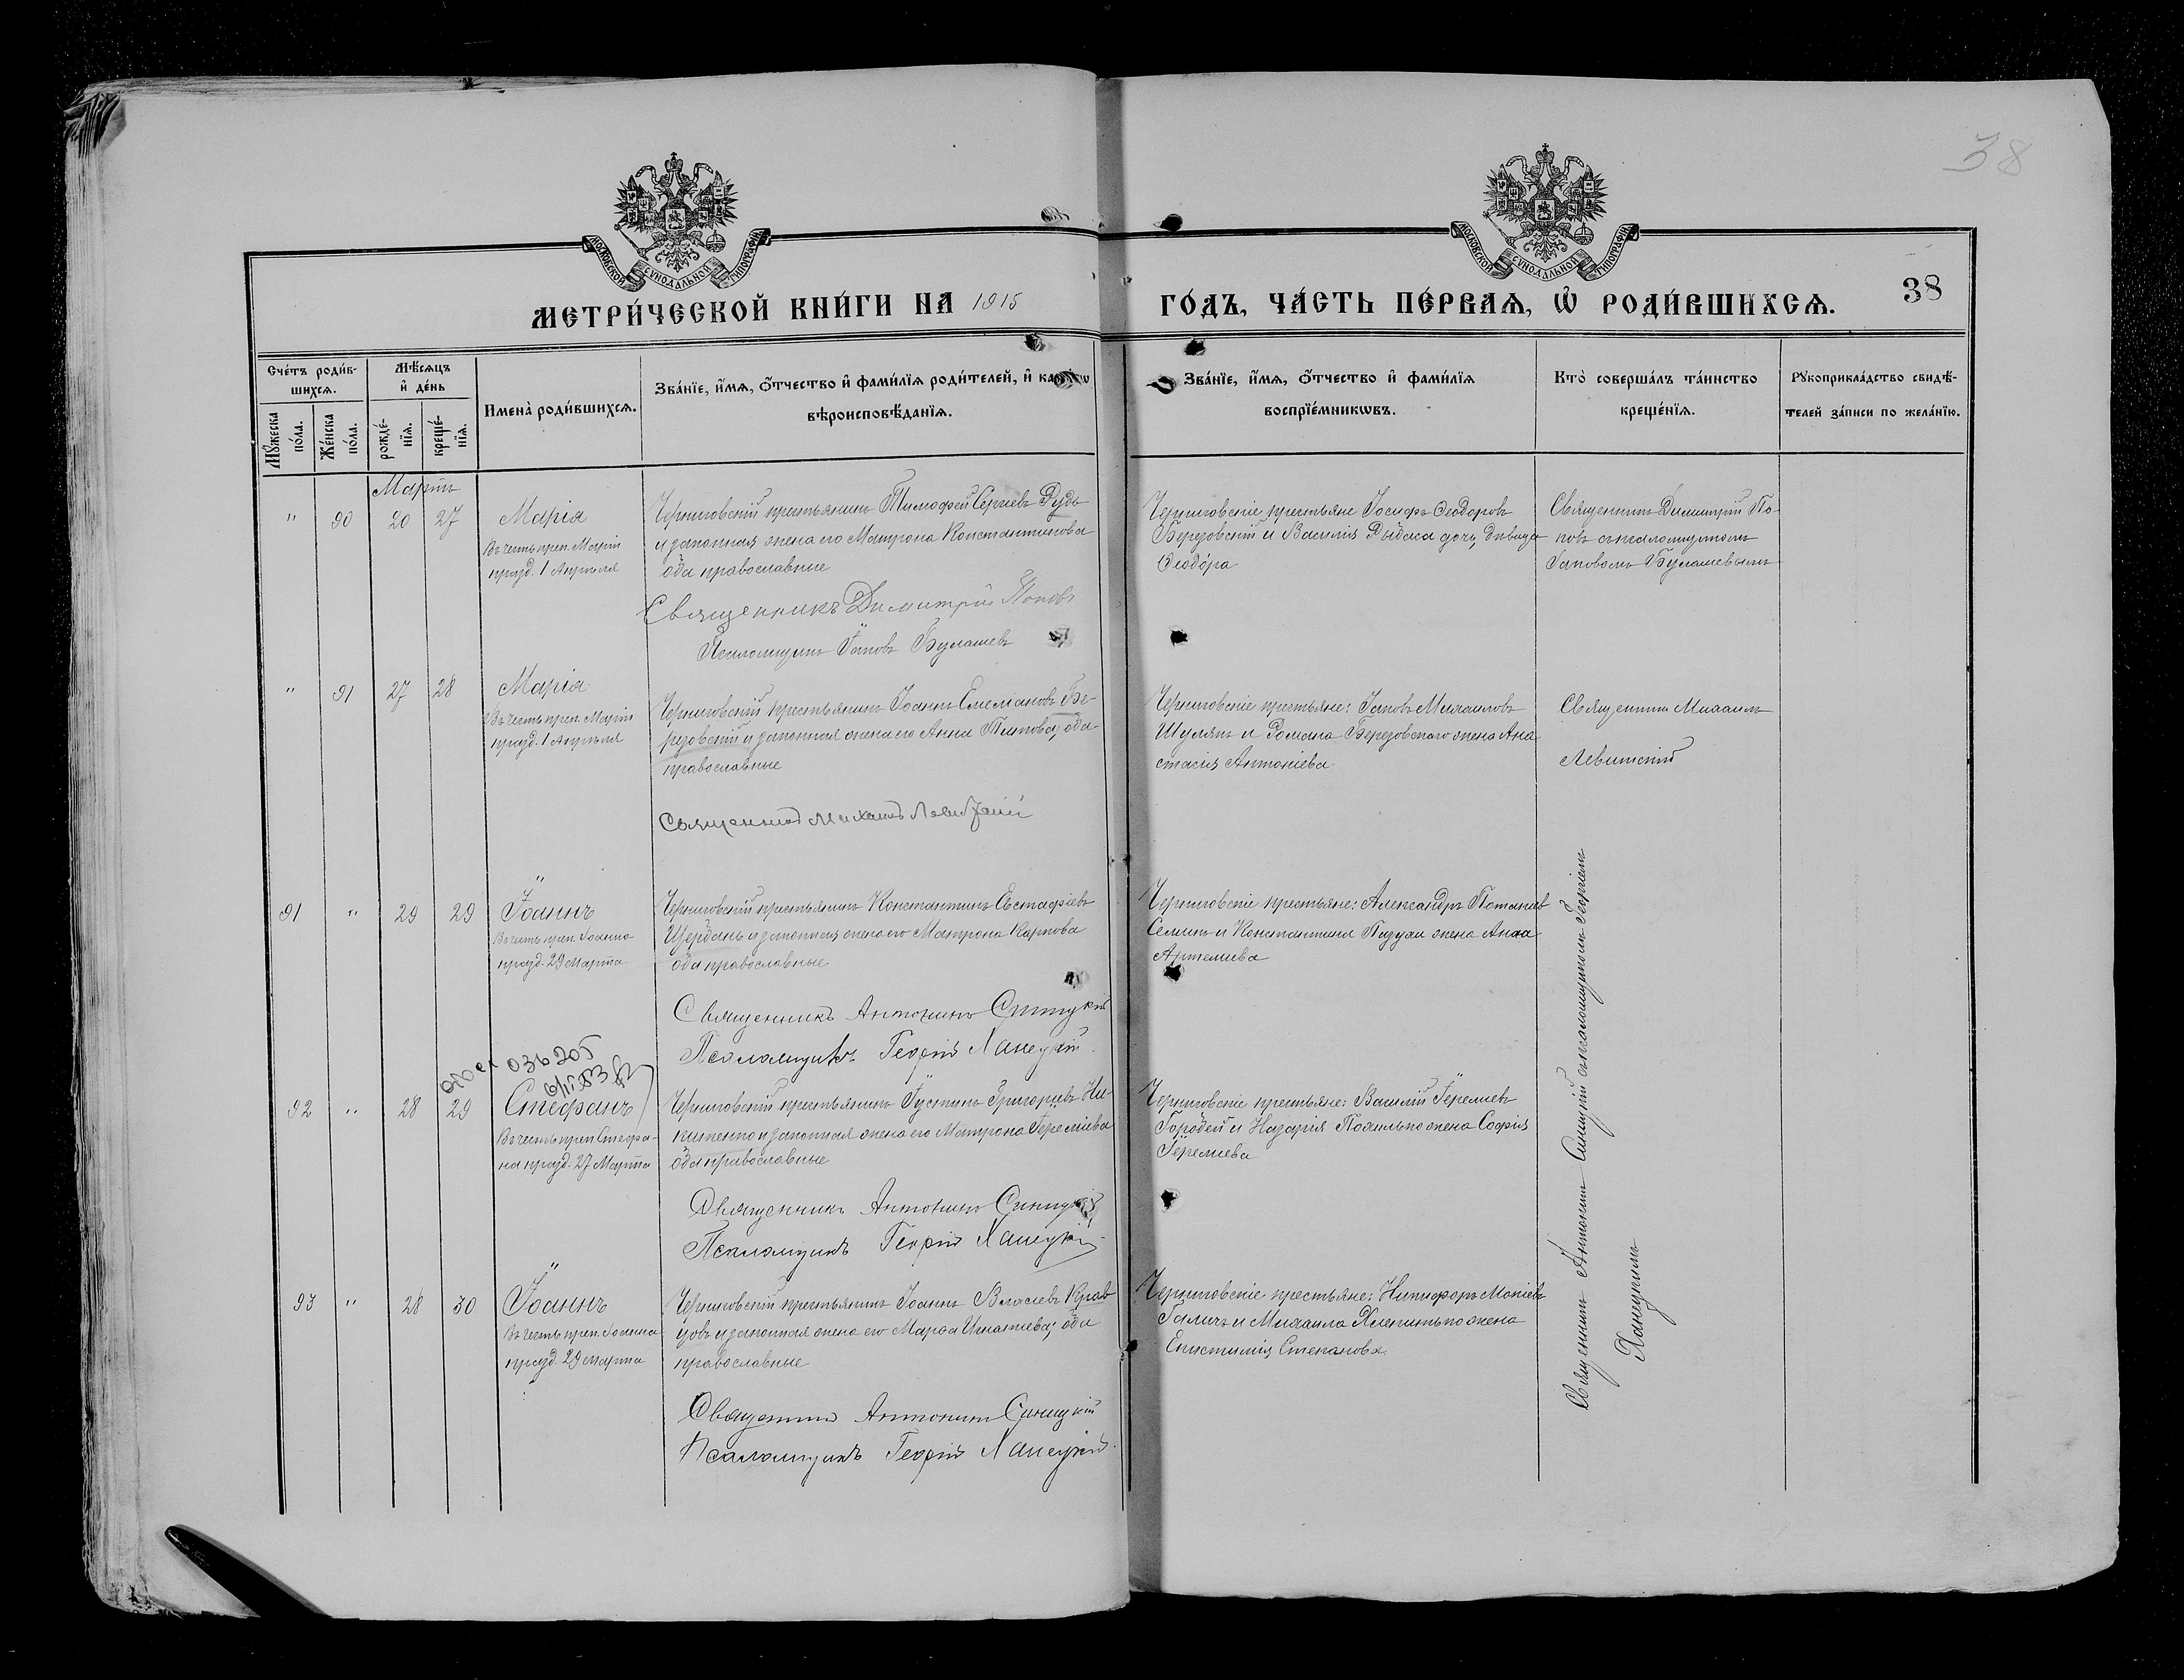 38
МОСКОВСКОЙ СѴНОДАЛЬНОЙ ТИПОГРАФІИ
МОСКОВСКОЙ СѴНОДАЛЬНОЙ ТИПОГРАФІИ
МЕТРИ́ЧЕСКОЙ КНИ́ГИ НА 1915
ГО́ДЪ, ЧА́СТЬ ПЕ́РВАѦ, Ѽ РОДИ́ВШИХСѦ.
38
Сче́тъ роди́в-
шихсѧ.
Мꙋ́жеска по́ла.
Же́нска по́ла.
Мѣ́сѧцъ
и҆ де́нь
рожде́-
нїѧ.
креще́-
нїѧ.
Имена̀ роди́вшихсѧ.
Зва́нїе, и҆́мѧ, ѻ҆́тчество и҆ фами́лїѧ роди́телей, и҆ како́гѡ
вѣроисповѣ́данїѧ.
Зва́нїе, и҆́мѧ, ѻ҆́тчество и҆ фами́лїѧ
воспрїе́мникѡвъ.
Кто̀ соверша́лъ та́инство
креще́нїѧ.
Рꙋкоприкла́дство свидѣ́-
телей за́писи по жела́нїю.
Мартъ
" 90 20 27
Марія
Въ честь преп. Маріи
празд. 1 Апрѣля
Черниговскій крестьянинъ Тимофей Сергіевъ Рудь
и законная жена его Матрона Константинова
оба православные
Священникъ Димитрій Поповъ
Псаломщикъ Іаковъ Булашевъ
Черниговскіе крестьяне Іосифъ Ѳеодоровъ
Березовскій и Василія Рыбака дочь, дѣвица
Ѳеодора
Священникъ Димитрій По-
повъ съ псаломщикомъ
Іаковомъ Булашевымъ
" 91 27 28
Марія
Въ честь преп. Маріи
празд. 1 Апрѣля
Черниговскій крестьянинъ Іоаннъ Емеліановъ Бе-
резовскій и законная жена его Анна Титова; оба
православные
Священникъ Михаилъ Левитскій
Черниговскіе крестьяне: Іаковъ Михаиловъ
Шулякъ и Романа Березовскаго жена Ана
стасія Антоніева
Священникъ Михаилъ
Левитскій
91 " 29 29
Іоаннъ
Въ честь преп. Іоанна
празд. 29 Марта
Черниговскій крестьянинъ Константинъ Евстафіевъ
Щербань и законная жена его Матрона Карпова
оба православные
Священникъ Антонинъ Синицкій
Псаломщикъ Георгій Ханецкій
Черниговскіе крестьяне: Александръ Потапіев
Семин и Константина жена Анна
Артемиева
92 " 28 29
Стефанъ
Въ честь преп. Стефа-
на празд. 27 Марта
Черниговскій крестьянинъ Іустинъ Григоріевъ Ни-
китенко и законная жена его Матрона Іереміева
оба православные
Священникъ Антонинъ Синицкій
Псаломщикъ Георгій Ханецкій
Черниговскіе крестьяне: Василій Іереміев
Городей и Назарія жена Софія
Іереміева
93 " 28 30
Іоаннъ
Въ честь преп. Іоанна
празд. 29 Марта
Черниговскій крестьянинъ Іоаннъ Власіевъ Крав
цовъ и законная жена его Марѳа Игнатиева; оба
православные
Священникъ Антонинъ Синицкій
Псаломщикъ Георгій Ханецкій
Черниговскіе крестьяне: Никифоръ
Галичъ и Михаила жена
Епистимія Степанова
Священникъ Антонинъ Синицкій съ псаломщикомъ Георгіемъ
Ханецкимъ